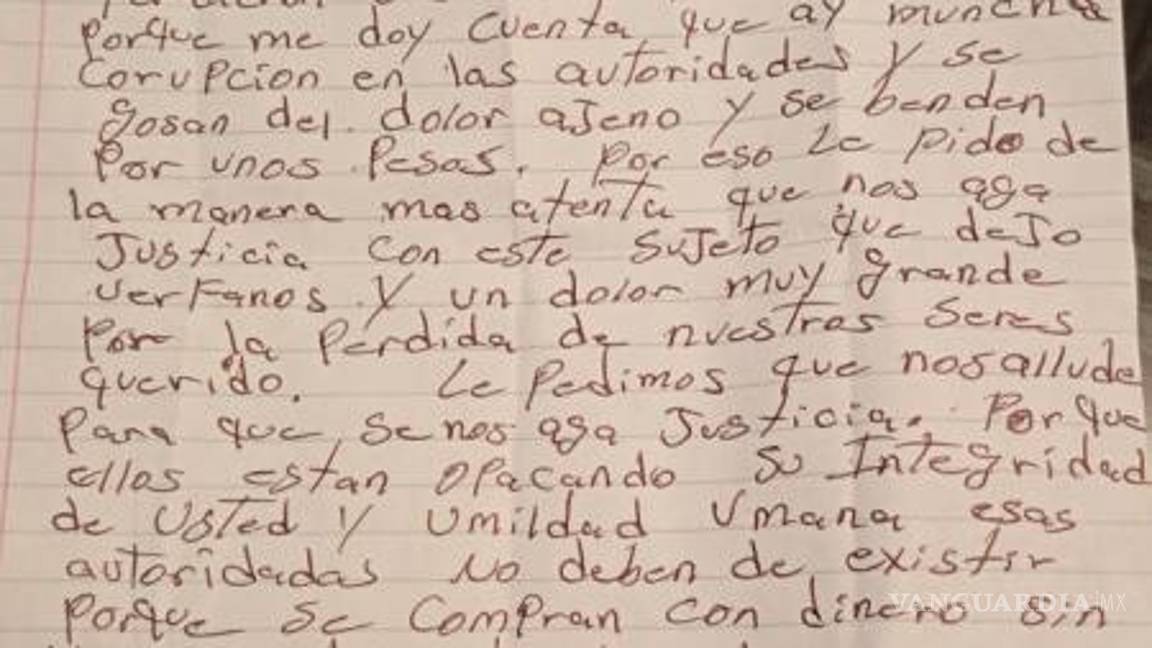 Porque me doy cuenta que ay muncha
Corupcion en las autoridades y se
gosan del dolor ajeno y se benden
Por unos Pesos. Por eso le pido de
la manera mas atenta que nos aga
Justicia con este sujeto que dejo
uerfanos y un dolor muy grande
Por la Perdida de nuestros seres
querido. Le Pedimos que nos allude
Para que se nos aga Justicia. Porque
ellos estan opacando su Integridad
de Usted y Umildad Umana esas
autoridadas No deben de existir
Porque se compran con dinero sin
VANGUARDIA MX